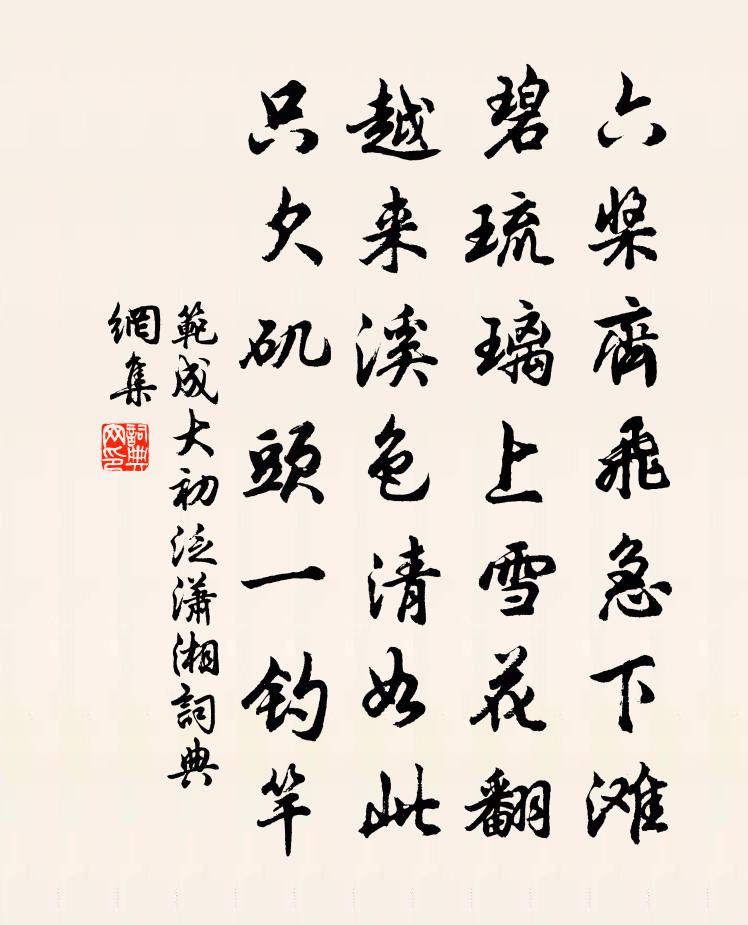 六桨齊飛急下滩
碧琉璃上雪花翻
越来溪色清如此
只欠矶頭一钓竿
範成大初泛瀟湘詞典
網集
詞典
网印